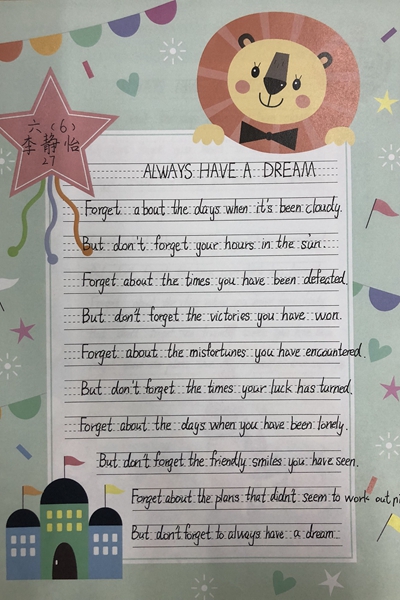 六（6）
李静怡
27
ALWAYS HAVE A DREAM
Forget about the days when it's been cloudy.
But don't forget your hours in the sun.
Forget about the times you have been defeated.
But don't forget the victories you have won.
Forget about the misfortunes you have encountered.
But don't forget the times your luck has turned.
Forget about the days when you have been lonely.
But don't forget the friendly smiles you have seen.
Forget about the plans that didn't seem to work out
But don't forget to always have a dream.